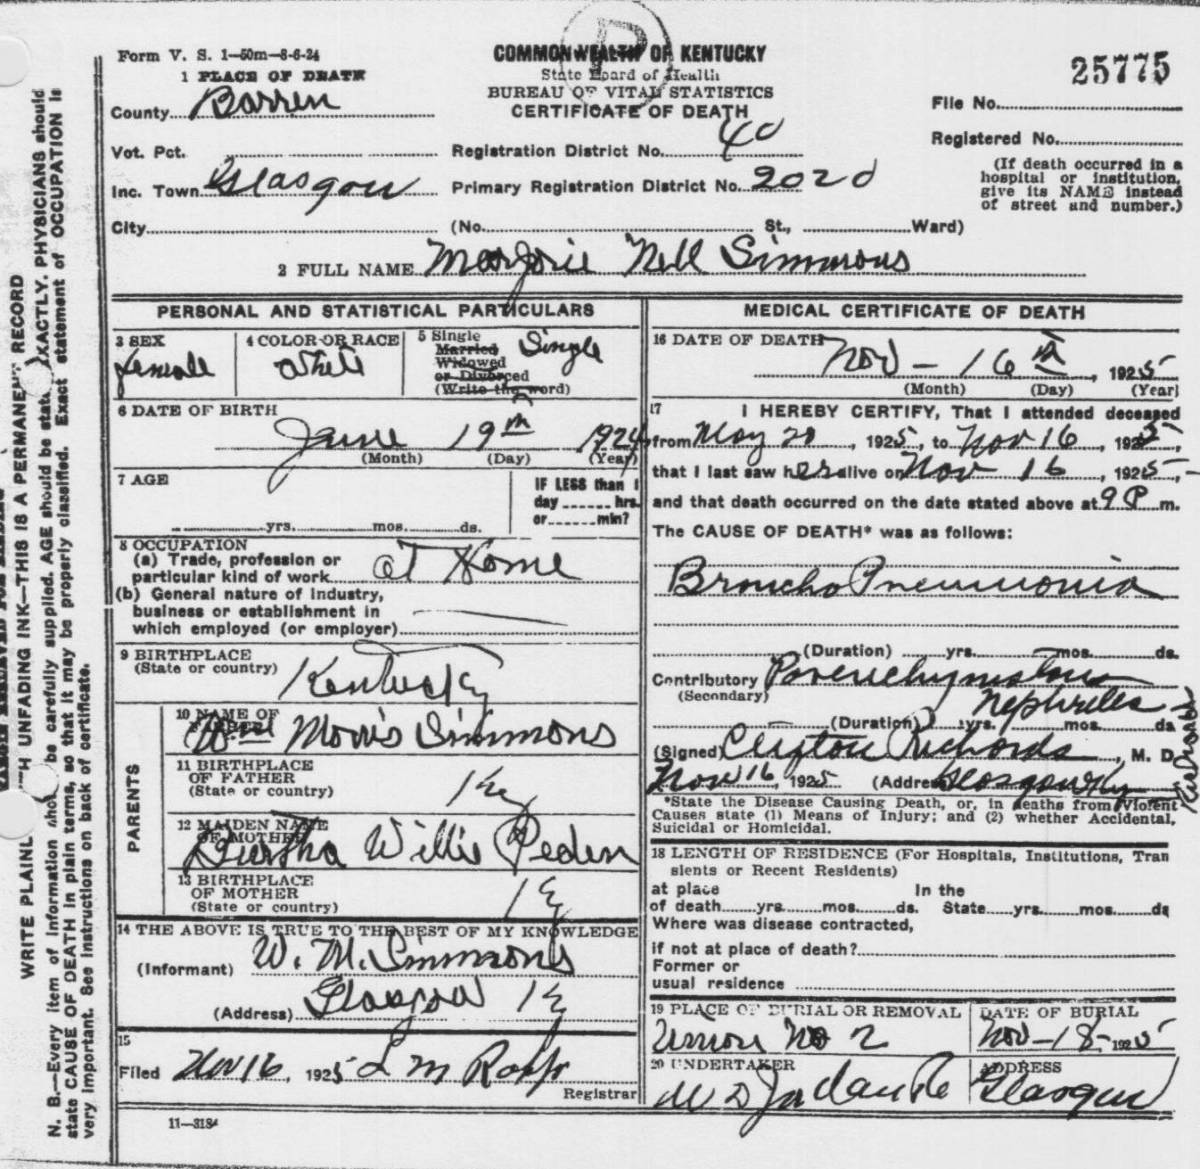 Form V. S. 1—50m—8-6-24
COMMONWEALTH OF KENTUCKY
25775
1 PLACE OF DEATH
State Board of Health
BUREAU OF VITAL STATISTICS
County Barren
CERTIFICATE OF DEATH
File No.
Vot. Pct.
Registration District No. 40
Registered No.
(If death occurred in a
hospital or institution,
give its NAME instead
of street and number.)
Inc. Town Glasgow
Primary Registration District No. 2020
City (No. St., Ward)
2 FULL NAME Marjorie Nell Simmons
PERSONAL AND STATISTICAL PARTICULARS
3 SEX
female
4 COLOR OR RACE
White
5 Single
Married
Widowed
or Divorced
(Write the word)
Single
6 DATE OF BIRTH
June 19th 1924
(Month) (Day) (Year)
7 AGE
yrs. mos. ds.
IF LESS than 1
day hrs.
or min?
8 OCCUPATION
(a) Trade, profession or
particular kind of work at Home
(b) General nature of Industry,
business or establishment in
which employed (or employer)
9 BIRTHPLACE
(State or country) Kentucky
PARENTS
10 NAME OF
FATHER
Wm Morris Simmons
11 BIRTHPLACE
OF FATHER
(State or country) Ky
12 MAIDEN NAME
OF MOTHER
Willie Peden
13 BIRTHPLACE
OF MOTHER
(State or country) Ky
14 THE ABOVE IS TRUE TO THE BEST OF MY KNOWLEDGE
(Informant) W. M. Simmons
(Address) Glasgow Ky
15
Filed Nov 16, 1925
Registrar
11—3184
MEDICAL CERTIFICATE OF DEATH
16 DATE OF DEATH
Nov - 16th, 1925
(Month) (Day) (Year)
17 I HEREBY CERTIFY, That I attended deceased
from May 20, 1925, to Nov 16, 1925,
that I last saw her alive on Nov 16, 1925,
and that death occurred on the date stated above at 9 P m.
The CAUSE OF DEATH* was as follows:
Broncho Pneumonia
(Duration) yrs. mos. ds.
Contributory Parenchymatous
(Secondary) Nephrites
(Duration) yrs. mos. ds
(Signed) Clifton Richards, M. D.
Nov 16, 1925 (Address) Glasgow Ky
*State the Disease Causing Death, or, in deaths from Violent
Causes state (1) Means of Injury; and (2) whether Accidental,
Suicidal or Homicidal.
18 LENGTH OF RESIDENCE (For Hospitals, Institutions, Tran
sients or Recent Residents)
at place In the
of death yrs. mos. ds. State yrs. mos. ds
Where was disease contracted,
if not at place of death?
Former or
usual residence
19 PLACE OF BURIAL OR REMOVAL
Union No 2
DATE OF BURIAL
Nov-18-1925
20 UNDERTAKER
ADDRESS
Glasgow
WRITE PLAINL TH UNFADING INK—THIS IS A PERMANENT RECORD
N. B.—Every item of information shou be carefully supplied. AGE should be stat EXACTLY. PHYSICIANS should
state CAUSE OF DEATH in plain terms, so that it may be properly classified. Exact statement of OCCUPATION is
very important. See instructions on back of certificate.